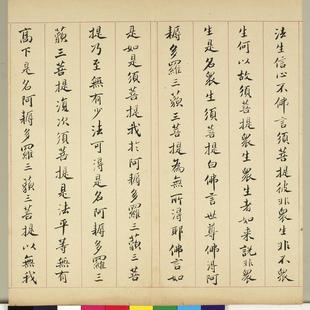 法生信心不佛言須菩提彼非眾生非不眾
生何以故須菩提眾生眾生者如来說非眾
生是名眾生須菩提白佛言世尊佛得阿
耨多羅三藐三菩提為無所得耶佛言如
是如是須菩提我於阿耨多羅三藐三菩
提乃至無有少法可得是名阿耨多羅三
藐三菩提復次須菩提是法平等無有
高下是名阿耨多羅三藐三菩提以無我